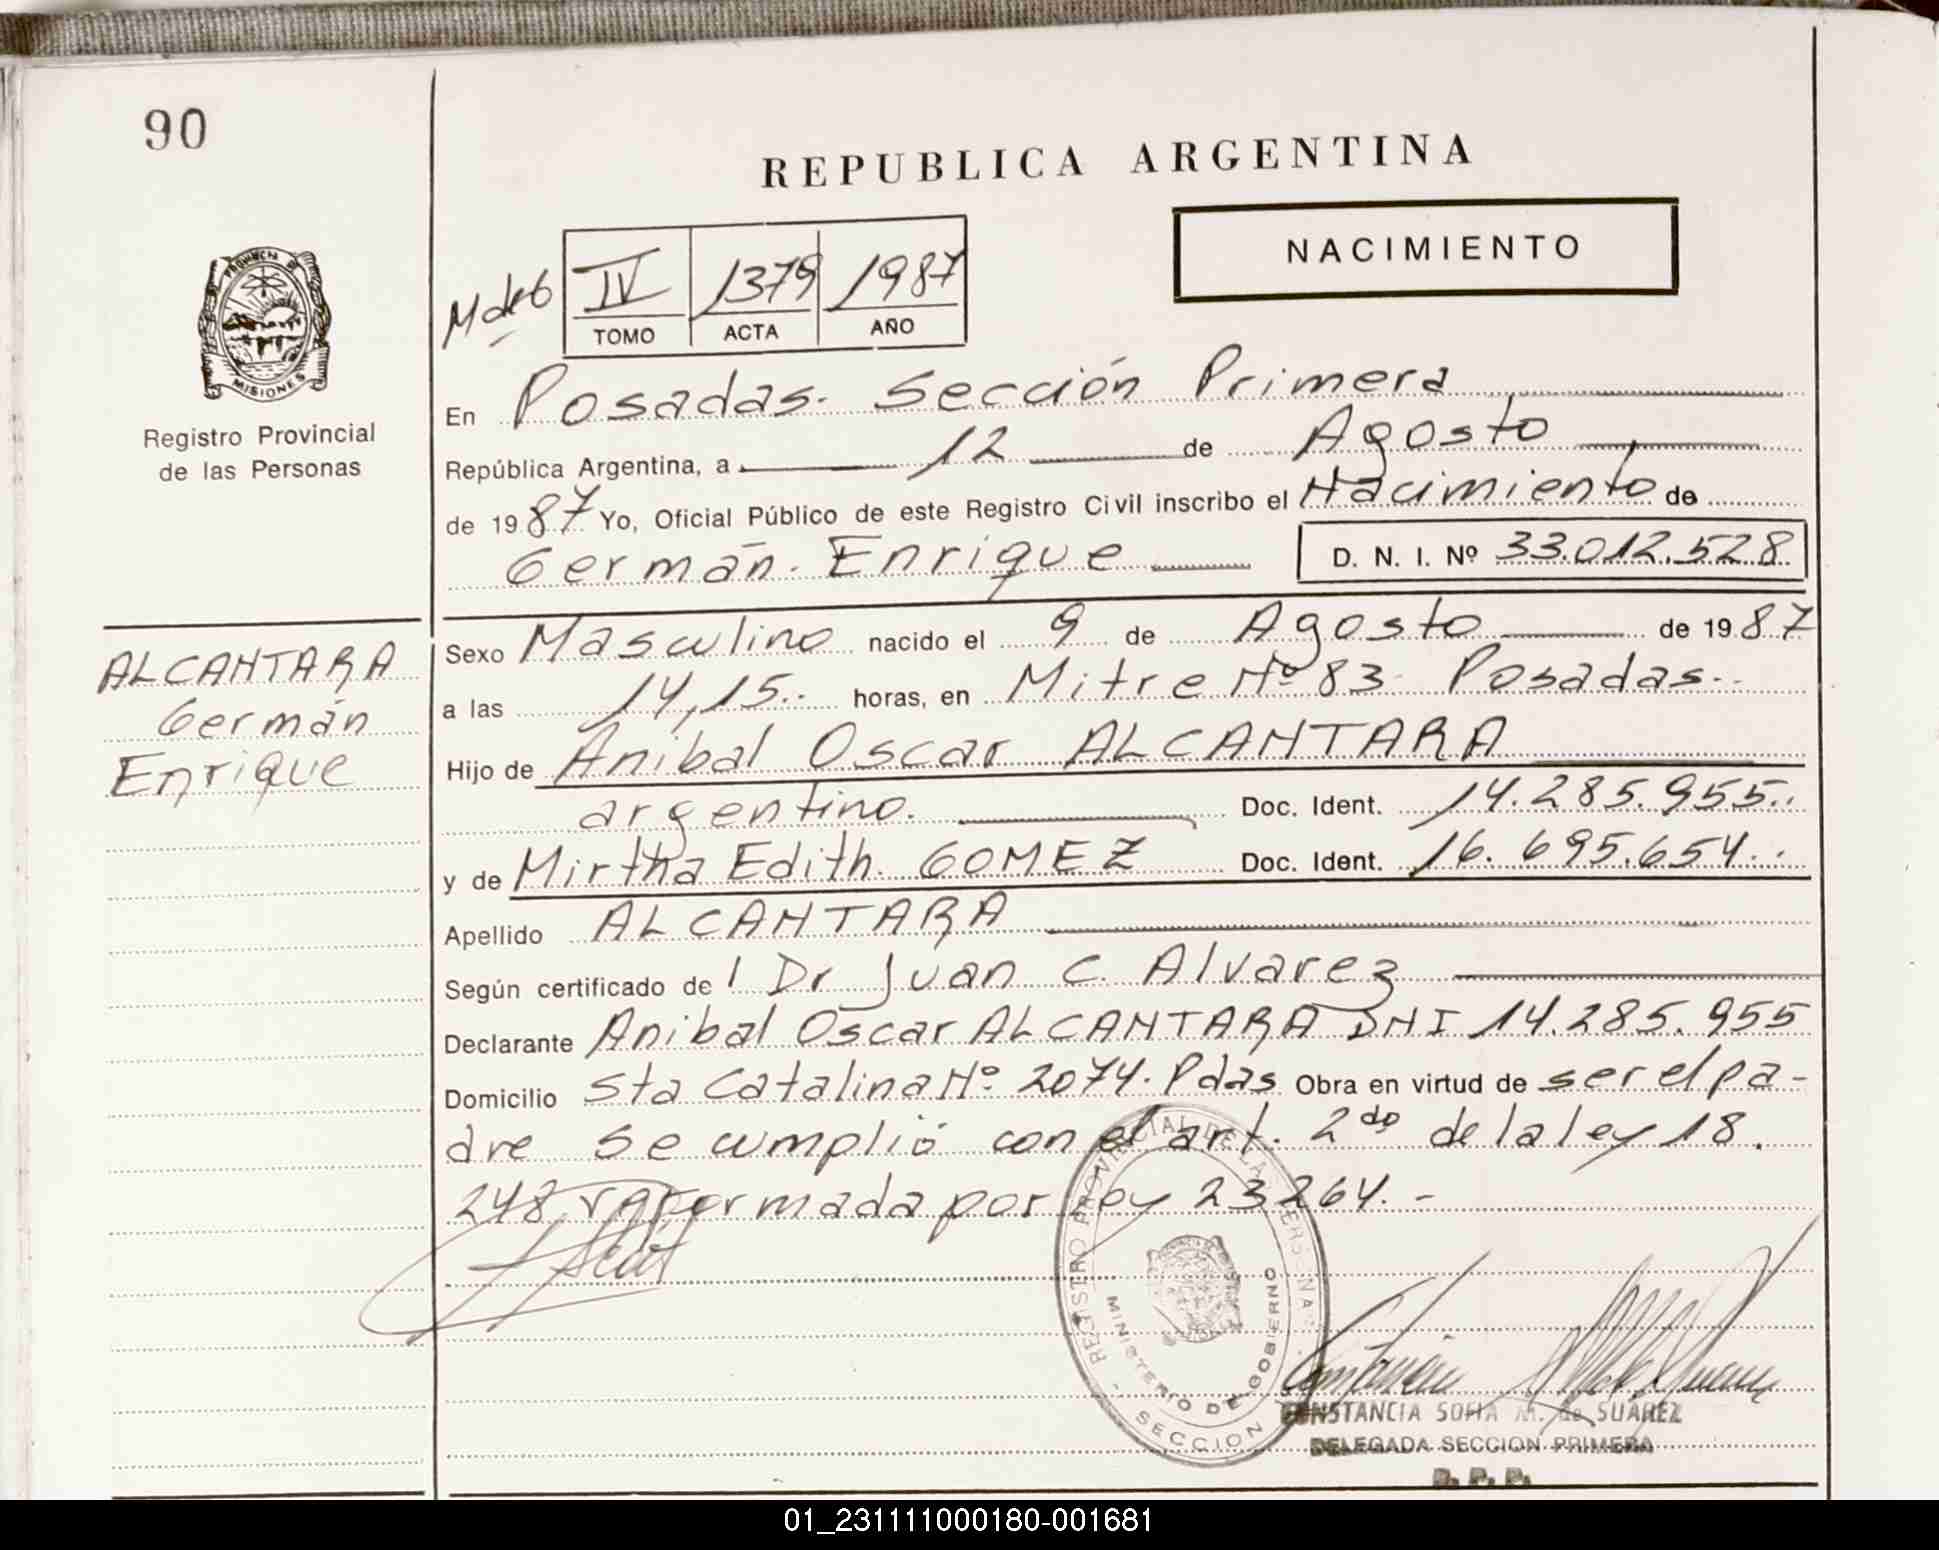 90
REPUBLICA ARGENTINA
NACIMIENTO
M de 6
IV 1379 1987
TOMO ACTA AÑO
PROVINCIA DE
MISIONES
Registro Provincial
de las Personas
En Posadas. Sección Primera
República Argentina, a 12 de Agosto
de 1987 Yo, Oficial Público de este Registro Civil inscribo el Nacimiento de
Germán. Enrique D. N. I. Nº 33.012.528
ALCANTARA
Germán
Enrique
Sexo Masculino nacido el 9 de Agosto de 1987
a las 14,15.. horas, en Mitre Nº 83 Posadas..
Hijo de Anibal Oscar ALCANTARA
argentino. Doc. Ident. 14.285.955..
y de Mirtha Edith. GOMEZ Doc. Ident. 16.695.654..
Apellido ALCANTARA
Según certificado de l Dr Juan C. Alvarez
Declarante Anibal Oscar ALCANTARA DNI 14.285.955
Domicilio Sta Catalina Nº 2074. Pdas Obra en virtud de ser el pa-
dre se cumplió con el art. 2do de la ley 18.
248 reformada por ley 23264.-
REGISTRO PROVINCIAL DE LAS PERSONAS
MINISTERIO DE GOBIERNO
SECCION
CONSTANCIA SOFIA M. de SUAREZ
DELEGADA SECCION PRIMERA
R. P. P.
01_231111000180-001681